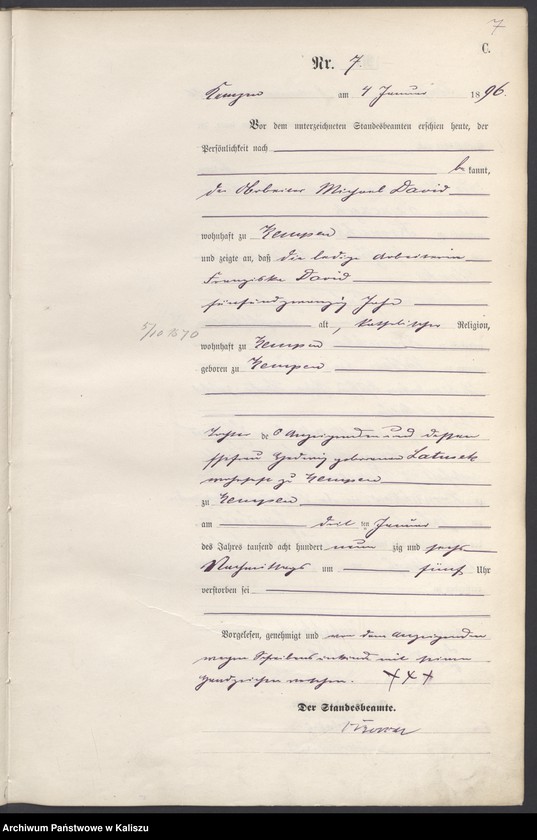 7
C.
Nr. 7.
Kempen am 4 Januar 1896.
Vor dem unterzeichneten Standesbeamten erschien heute, der
Persönlichkeit nach
be kannt,
der Arbeiter Michael David
wohnhaft zu Kempen
und zeigte an, daß die ledige Arbeiterin
Franziska David
fünfundzwanzig Jahr
alt, katholischer Religion,
5/10 1870
wohnhaft zu Kempen
geboren zu Kempen
Tochter des Anzeigenden und dessen
Ehefrau Hedwig geborene Latusek
wohnhaft zu Kempen
zu Kempen
am drei ten Januar
des Jahres tausend acht hundert neun zig und sechs
Nachmittags um fünf Uhr
verstorben sei
Vorgelesen, genehmigt und von dem Anzeigenden
wegen Schreibens unkunde mit seinem
Handzeichen versehen. +++
Der Standesbeamte.
Archiwum Państwowe w Kaliszu